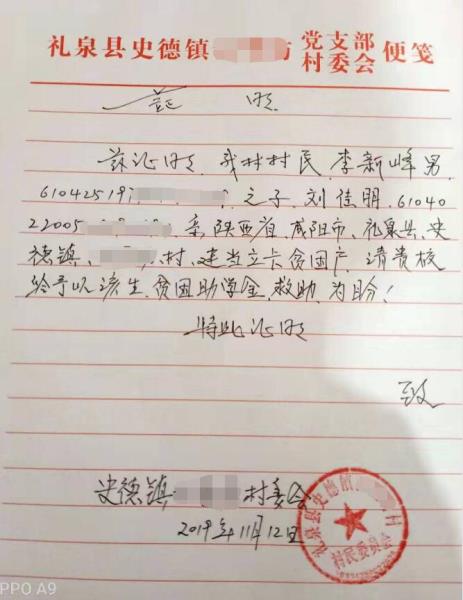 礼泉县史德镇 党支部 村委会 便笺
证 明
兹证明, 我村村民, 李新峰男,
610425197 之子, 刘佳明, 61040
22005 系,陕西省,咸阳市、礼泉县,史
德镇、 村,建档立卡贫困户,请贵校
给予以该生,贫困助学金,救助,为盼!
特此证明
致
史德镇 村委会
2019年11月12日
礼泉县史德镇 村
村民委员会
PPO A9